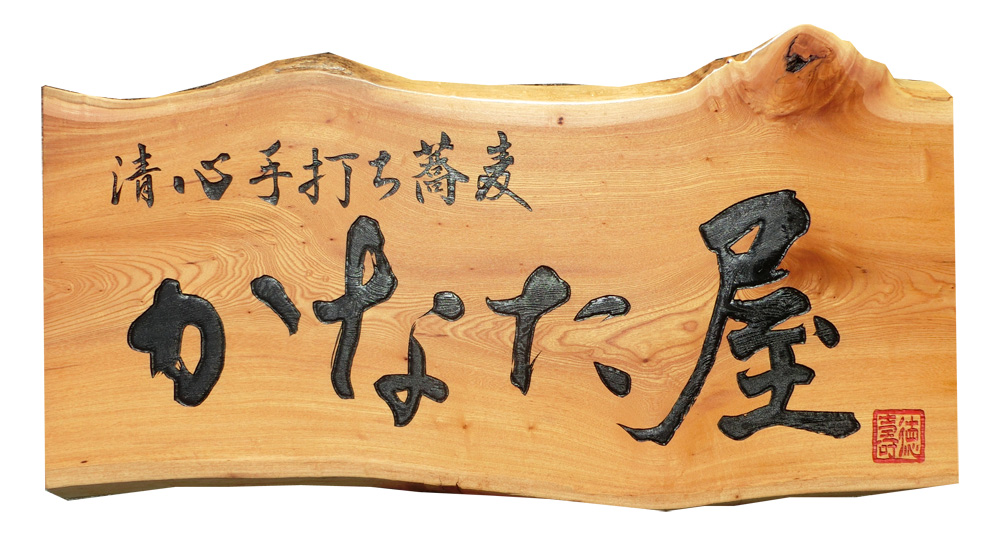 清心手打ち蕎麦
かなた屋
徳壽